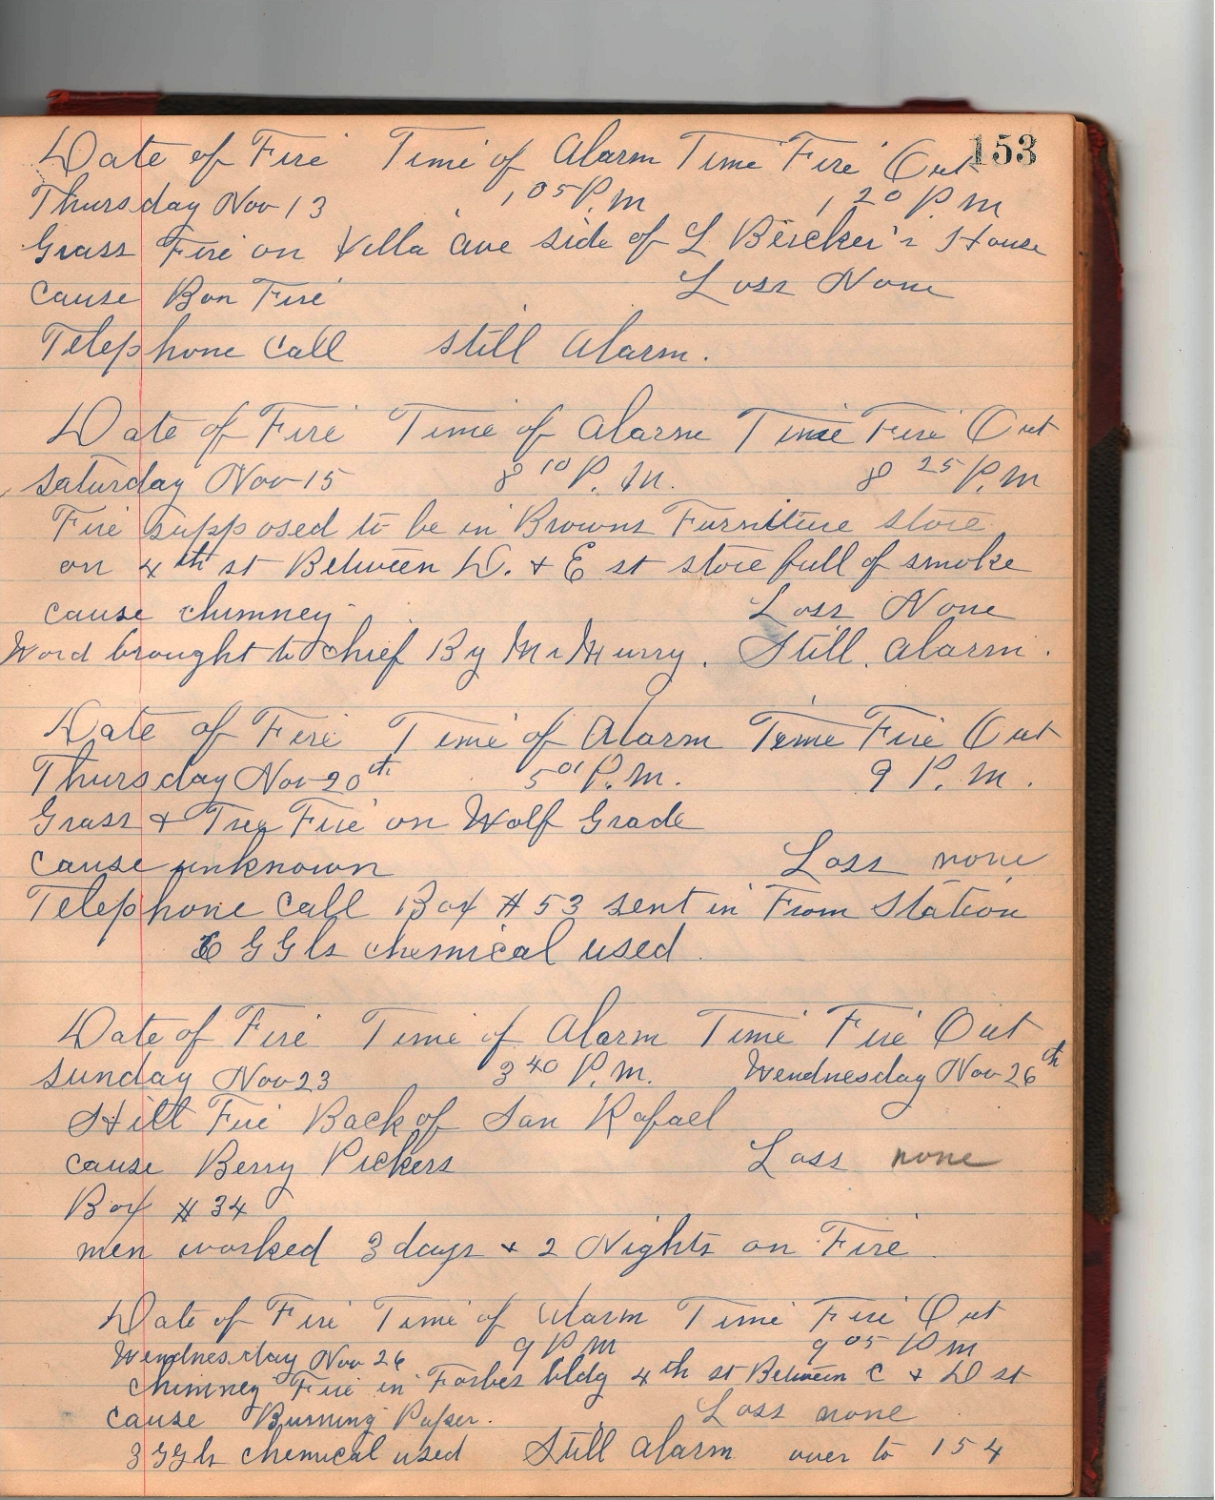 153
Date of Fire Time of Alarm Time Fire Out
Thursday Nov 13 1 05 P.M 1 20 P.M
Grass Fire on Villa Ave side of L Bercker's House
cause Bon Fire Loss None
Telephone Call still Alarm.
Date of Fire Time of Alarm Time Fire Out
Saturday Nov 15 8 10 P.M. 8 25 P.M
Fire supposed to be in Browns Furniture store
on 4th st Between D. & E st store full of smoke
cause chimney Loss None
Word brought to chief By McMurry. Still Alarm.
Date of Fire Time of Alarm Time Fire Out
Thursday Nov 20th 5 01 P.M. 9 P.M.
Grass & Tree Fire on Wolf Grade
Cause unknown Loss none
Telephone Call Box #53 sent in From Station
6 GGls chemical used
Date of Fire Time of Alarm Time Fire Out
Sunday Nov 23 3 40 P.M. Wendnesday Nov 26th
Hill Fire Back of San Rafael
cause Berry Pickers Loss none
Box #34
men worked 3 days & 2 Nights on Fire
Date of Fire Time of Alarm Time Fire Out
Wendnesday Nov 26 9 P M 9 05 P M
chimney Fire in Forbes bldg 4th st Between C & D st
cause Burning Paper. Loss none
3 GGls chemical used Still Alarm over to 154